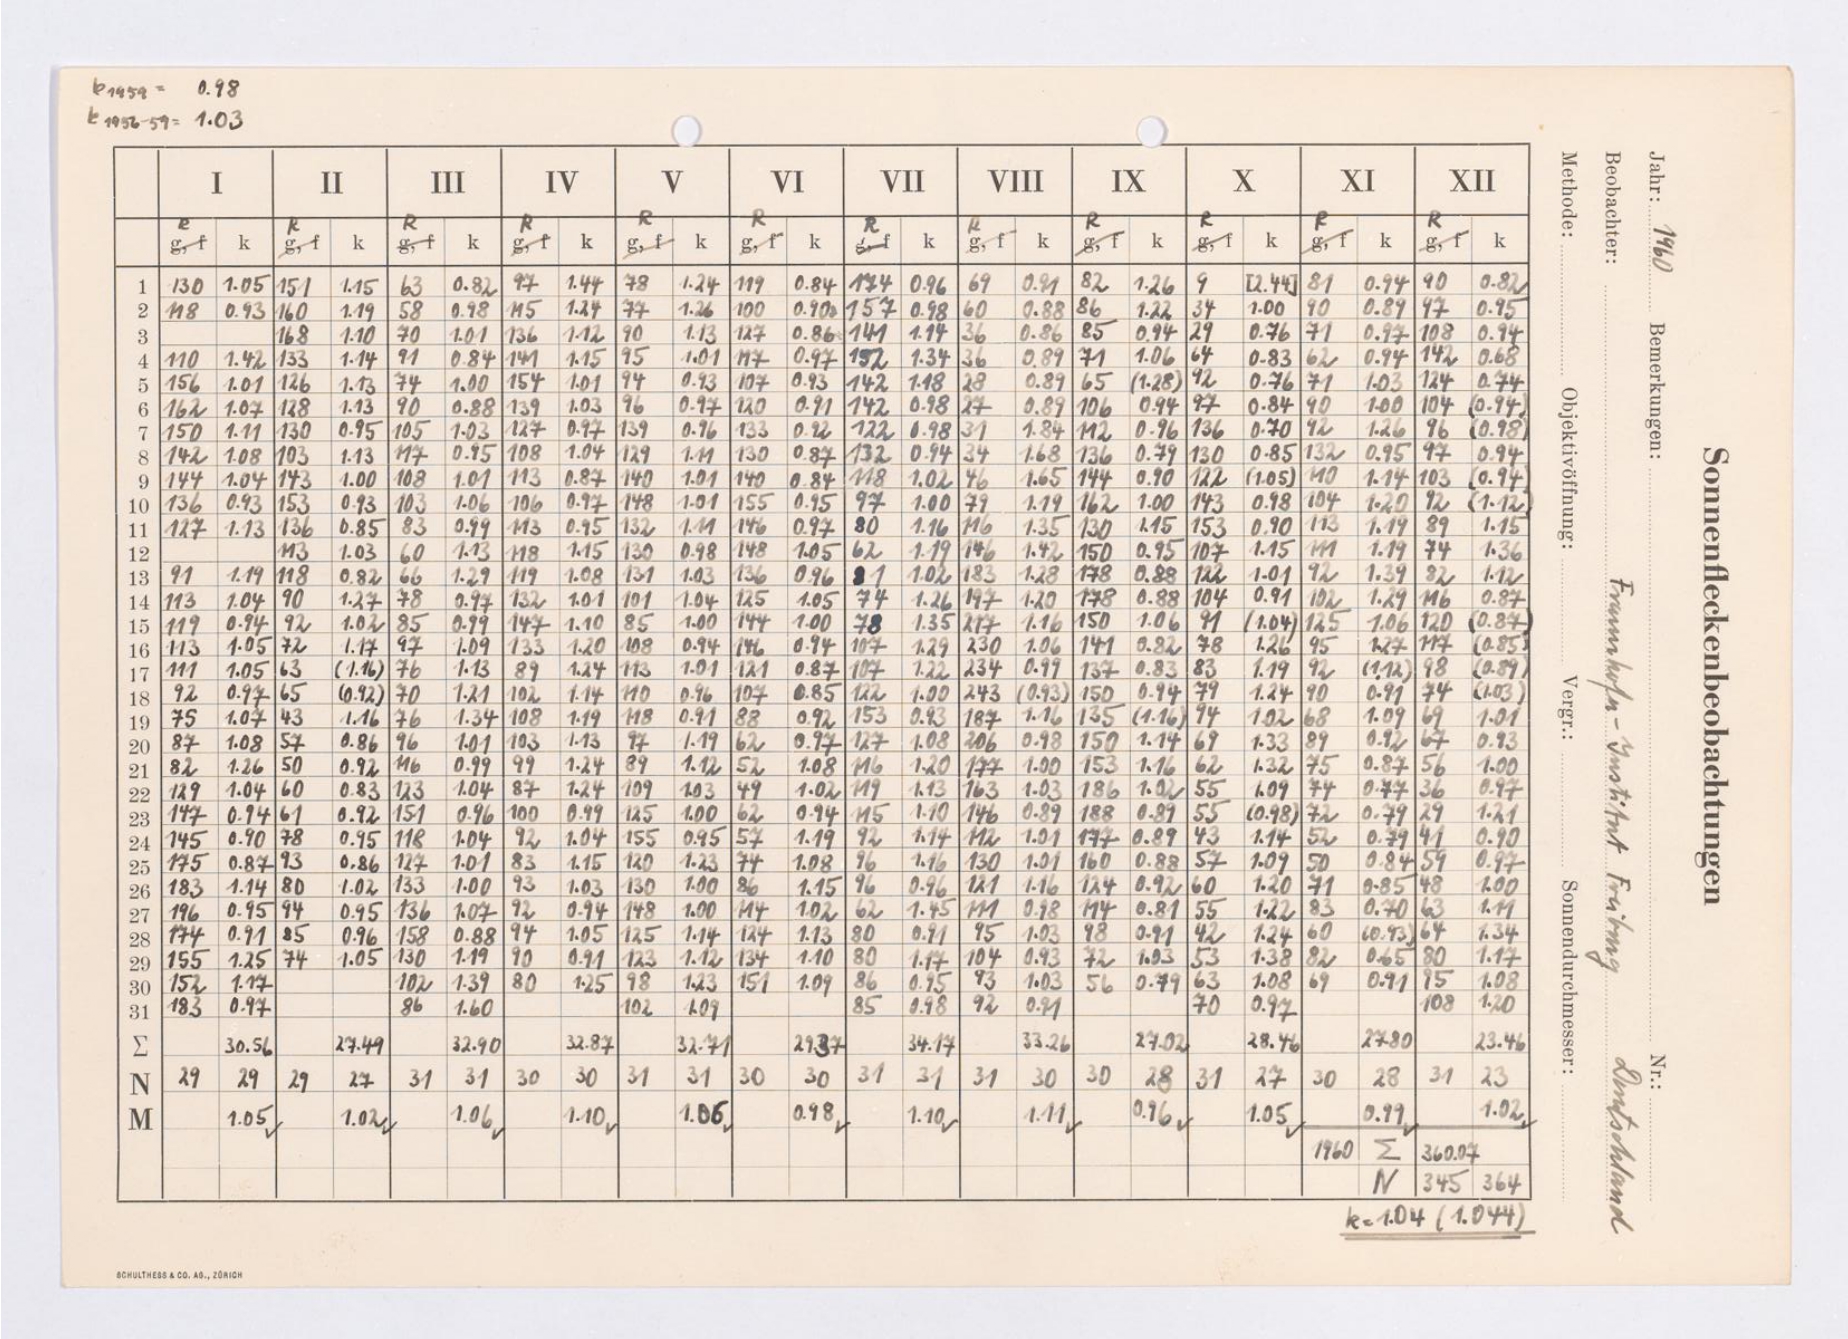 k 1959 = 0.98
k 1956-59 = 1.03
Sonnenfleckenbeobachtungen
Jahr: 1960 Bemerkungen: Nr.:
Beobachter: Fraunhofer-Institut Freiburg Deutschland
Methode: Objektivöffnung: Vergr.: Sonnendurchmesser:
I II III IV V VI VII VIII IX X XI XII
R R R R R R R R R R R R
g, f k g, f k g, f k g, f k g, f k g, f k g, f k g, f k g, f k g, f k g, f k g, f k
1 130 1.05 151 1.15 63 0.82 97 1.44 78 1.24 119 0.84 174 0.96 69 0.91 82 1.26 9 [2.44] 81 0.94 90 0.82
2 118 0.93 160 1.19 58 0.98 115 1.24 77 1.26 100 0.90 157 0.98 60 0.88 86 1.22 34 1.00 90 0.89 97 0.95
3 168 1.10 70 1.01 136 1.12 90 1.13 127 0.86 141 1.14 36 0.86 85 0.94 29 0.76 71 0.97 108 0.94
4 110 1.42 133 1.14 91 0.84 141 1.15 95 1.01 117 0.97 152 1.34 36 0.89 71 1.06 64 0.83 62 0.94 142 0.68
5 156 1.01 126 1.13 74 1.00 154 1.01 94 0.93 107 0.93 142 1.18 28 0.89 65 (1.28) 92 0.76 71 1.03 124 0.74
6 162 1.07 128 1.13 90 0.88 139 1.03 96 0.97 120 0.91 142 0.98 27 0.89 106 0.94 97 0.84 90 1.00 104 (0.94)
7 150 1.11 130 0.95 105 1.03 127 0.97 139 0.96 133 0.92 122 0.98 31 1.84 112 0.96 136 0.70 92 1.26 96 (0.98)
8 142 1.08 103 1.13 117 0.95 108 1.04 129 1.11 130 0.87 132 0.94 34 1.68 136 0.79 130 0.85 132 0.95 97 0.94
9 144 1.04 143 1.00 108 1.01 113 0.87 140 1.01 140 0.84 118 1.02 46 1.65 144 0.90 122 (1.05) 110 1.14 103 (0.94)
10 136 0.93 153 0.93 103 1.06 106 0.97 148 1.01 155 0.95 97 1.00 79 1.19 162 1.00 143 0.98 104 1.20 92 (1.12)
11 127 1.13 136 0.85 83 0.99 113 0.95 132 1.11 146 0.97 80 1.16 116 1.35 130 1.15 153 0.90 113 1.19 89 1.15
12 113 1.03 60 1.13 118 1.15 130 0.98 148 1.05 62 1.19 146 1.42 150 0.95 107 1.15 111 1.19 74 1.36
13 91 1.19 118 0.82 66 1.29 119 1.08 131 1.03 136 0.96 81 1.02 183 1.28 178 0.88 122 1.01 92 1.39 82 1.12
14 113 1.04 90 1.27 78 0.97 132 1.01 101 1.04 125 1.05 74 1.26 197 1.20 178 0.88 104 0.91 102 1.29 116 0.87
15 119 0.94 92 1.02 85 0.99 147 1.10 85 1.00 144 1.00 78 1.35 217 1.16 150 1.06 91 (1.04) 125 1.06 120 (0.87)
16 113 1.05 72 1.17 97 1.09 133 1.20 108 0.94 146 0.94 107 1.29 230 1.06 141 0.82 78 1.26 95 1.27 117 (0.85)
17 111 1.05 63 (1.16) 76 1.13 89 1.24 113 1.01 121 0.87 107 1.22 234 0.99 137 0.83 83 1.19 92 (1.12) 98 (0.89)
18 92 0.97 65 (0.92) 70 1.21 102 1.14 110 0.96 107 0.85 122 1.00 243 (0.93) 150 0.94 79 1.24 90 0.91 74 (1.03)
19 75 1.07 43 1.16 76 1.34 108 1.19 118 0.91 88 0.92 153 0.93 187 1.16 135 (1.16) 94 1.02 68 1.09 69 1.01
20 87 1.08 57 0.86 96 1.01 103 1.13 97 1.19 62 0.97 127 1.08 206 0.98 150 1.14 69 1.33 89 0.92 67 0.93
21 82 1.26 50 0.92 116 0.99 99 1.24 89 1.12 52 1.08 116 1.20 177 1.00 153 1.16 62 1.32 75 0.87 56 1.00
22 129 1.04 60 0.83 123 1.04 87 1.24 109 1.03 49 1.02 119 1.13 163 1.03 186 1.02 55 1.09 74 0.77 36 0.97
23 147 0.94 61 0.92 151 0.96 100 0.99 125 1.00 62 0.94 115 1.10 146 0.89 188 0.89 55 (0.98) 72 0.79 29 1.21
24 145 0.90 78 0.95 118 1.04 92 1.04 155 0.95 57 1.19 92 1.14 112 1.01 177 0.89 43 1.14 52 0.79 41 0.90
25 175 0.87 93 0.86 127 1.01 83 1.15 120 1.23 74 1.08 96 1.16 130 1.01 160 0.88 57 1.09 50 0.84 59 0.97
26 183 1.14 80 1.02 133 1.00 93 1.03 130 1.00 86 1.15 96 0.96 121 1.16 124 0.92 60 1.20 71 0.85 48 1.00
27 196 0.95 94 0.95 136 1.07 92 0.94 148 1.00 114 1.02 62 1.45 111 0.98 114 0.81 55 1.22 83 0.70 63 1.11
28 174 0.91 85 0.96 158 0.88 94 1.05 125 1.14 124 1.13 80 0.91 95 1.03 98 0.91 42 1.24 60 (0.93) 64 1.34
29 155 1.25 74 1.05 130 1.19 90 0.91 123 1.12 134 1.10 80 1.17 104 0.93 72 1.03 53 1.38 82 0.65 80 1.17
30 152 1.17 102 1.39 80 1.25 98 1.23 151 1.09 86 0.95 93 1.03 56 0.79 63 1.08 69 0.91 95 1.08
31 183 0.97 86 1.60 102 1.09 85 0.98 92 0.91 70 0.97 108 1.20
Σ 30.56 27.49 32.90 32.87 32.71 29.37 34.17 33.26 27.02 28.46 27.80 23.46
N 29 29 29 27 31 31 30 30 31 31 30 30 31 31 31 30 30 28 31 27 30 28 31 23
M 1.05 1.02 1.06 1.10 1.06 0.98 1.10 1.11 0.96 1.05 0.99 1.02
1960 Σ 360.07
N 345 364
k = 1.04 (1.044)
SCHULTHESS & CO. AG., ZÜRICH